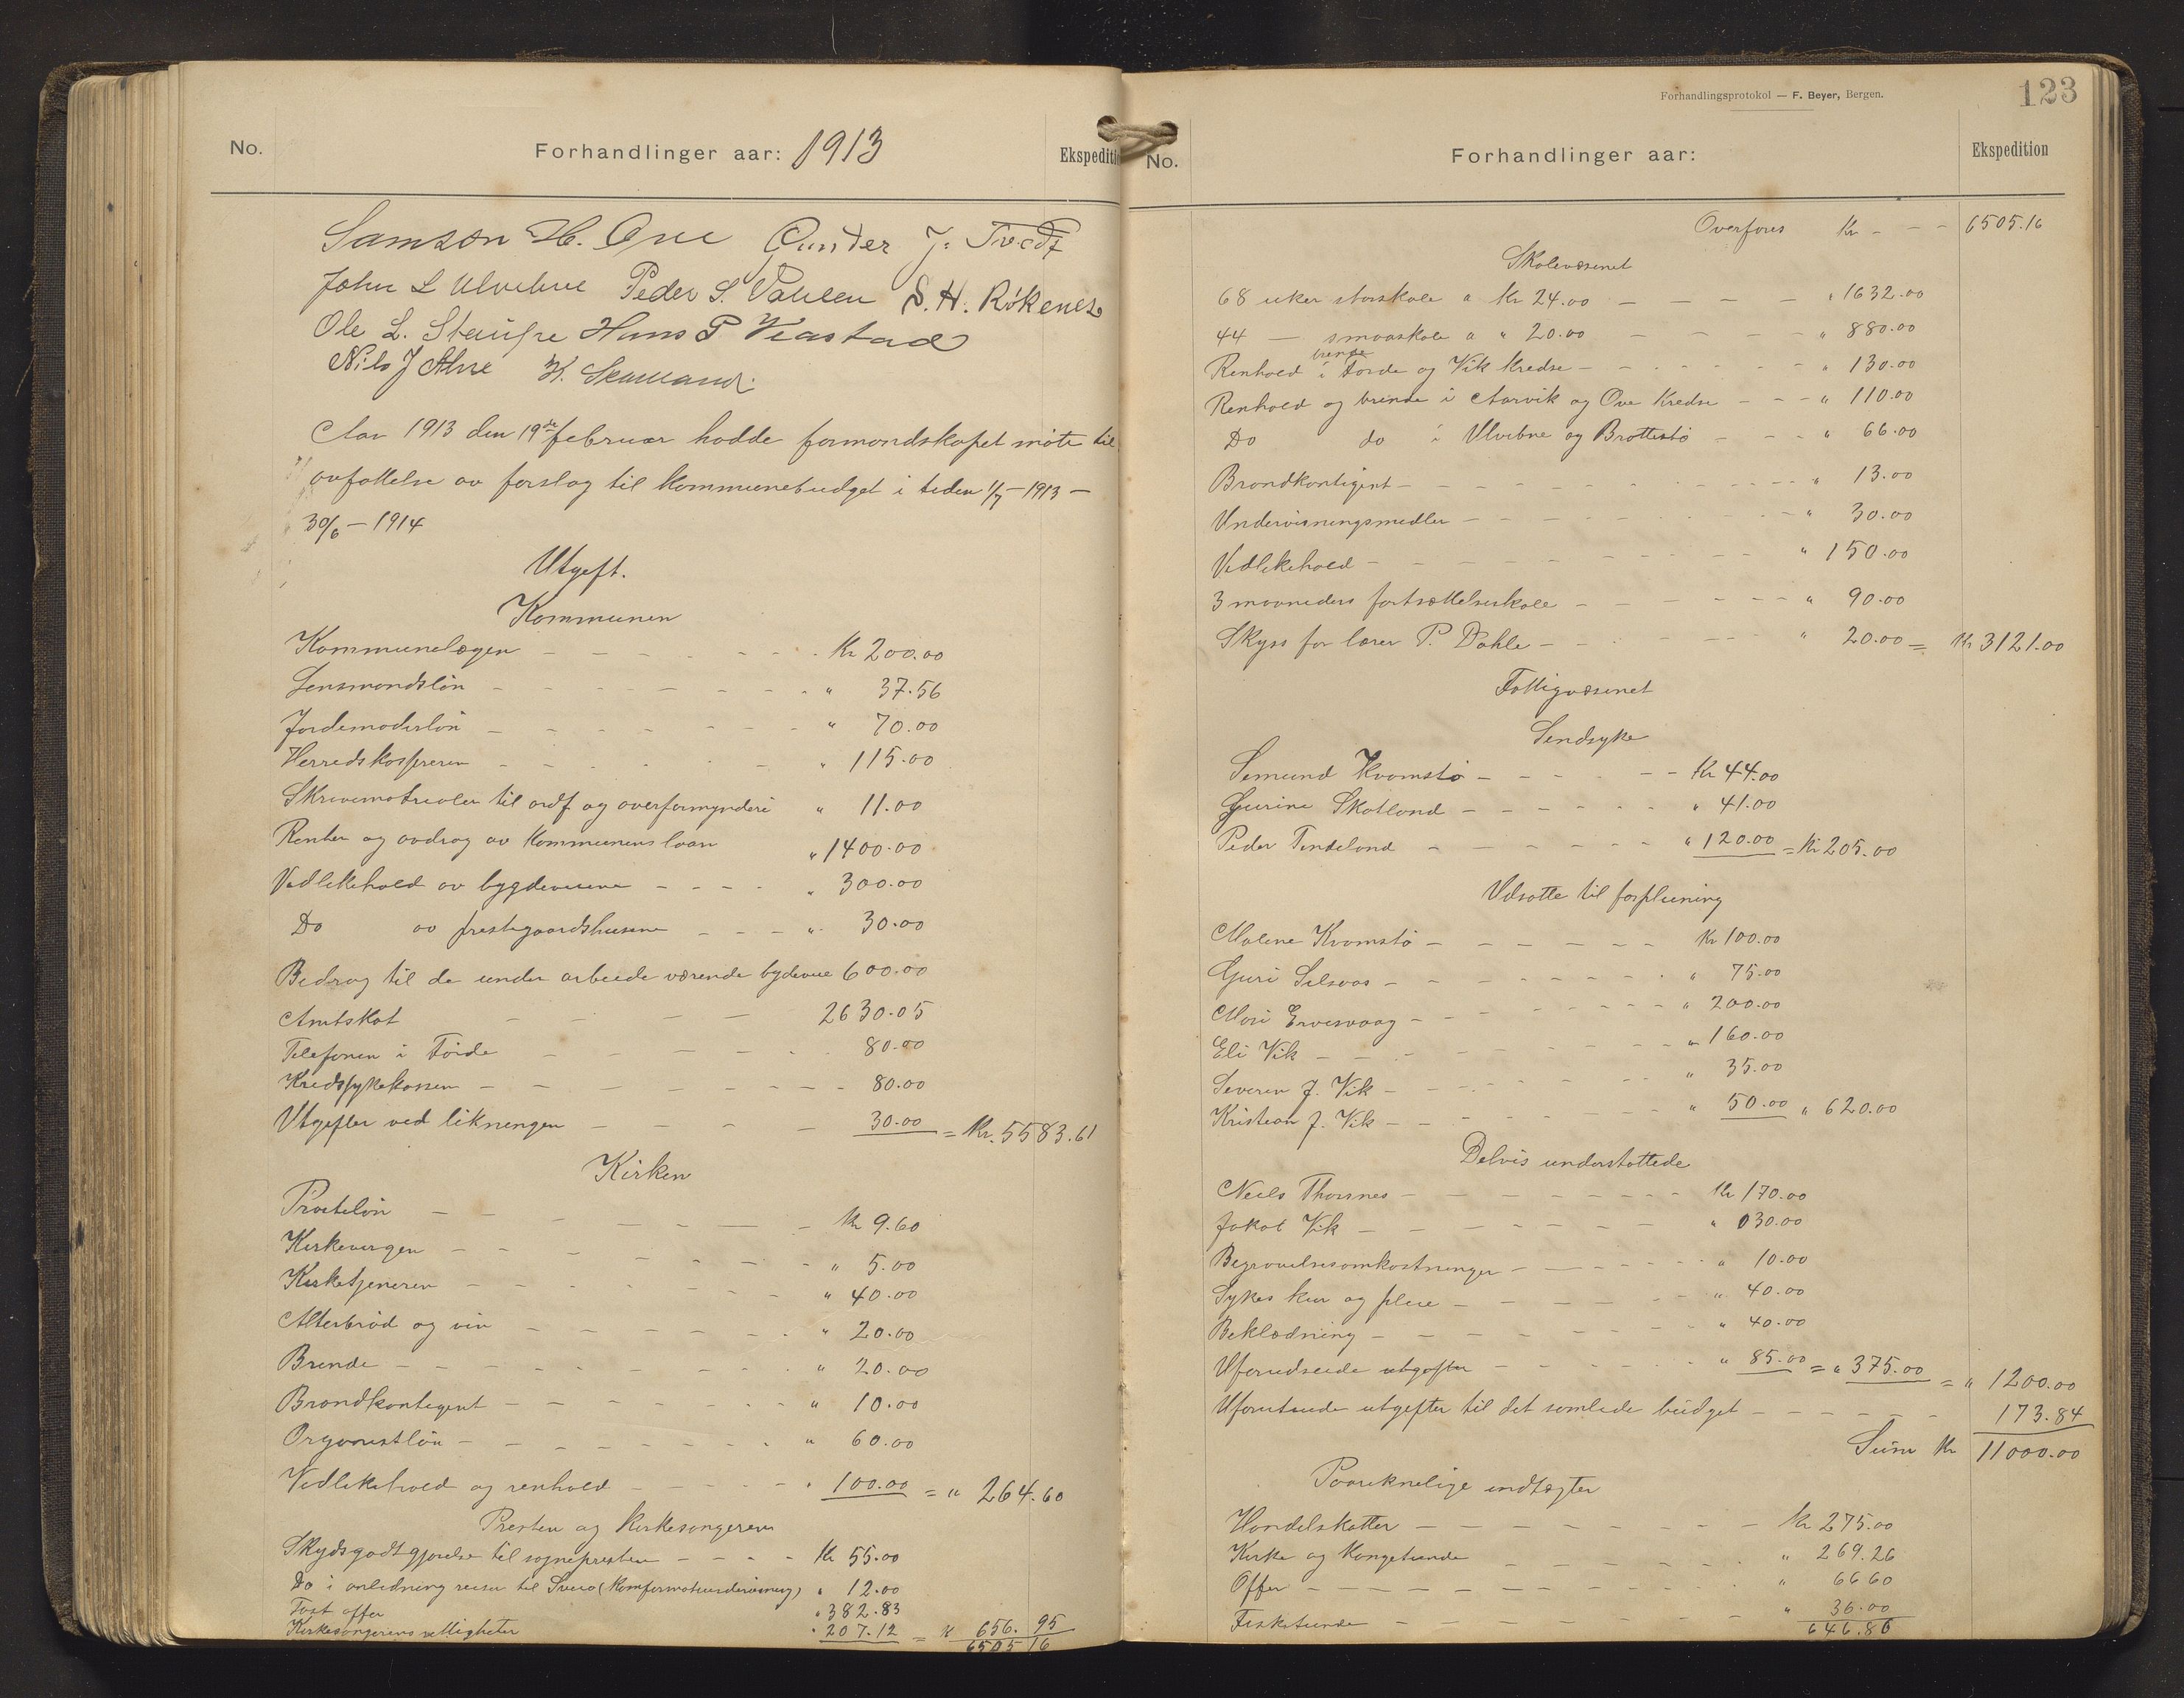 No.
Forhandlinger aar: 1913
Ekspediti
Samson H. Ove Gunder J. Tvedt
John L Ulvebne Peder S. S. H. Røkenes
Ole L. Steinsre Hans P.
Nils J Alne K.
Aar 1913 den 19de februar hadde formandskapet møte til
avfattelse av forslag til kommunebudget i tiden 1/7 – 1913 –
30/6 – 1914
Utgift.
Kommunen
Kommunelægen – – – – Kr 200.00
Lensmandsløn – – – – " 37.56
Jordemoderløn – – – – " 70.00
Herredskasserern – – – – " 115.00
Skrivematrealer til ordf og overformynderi " 11.00
Renter og avdrag av kommunens laan " 1400.00
Vedlikehold av bygdeveiene – – – " 300.00
Do av prestegaardshusene – – – " 30.00
Bedrag til de under arbeide værende bydeveie 600.00
Amtskat – – – – 2630.05
Telefonen i Førde – – – – 80.00
Kredssykekassen – – – – 80.00
Utgifter ved likningen – – – – 30.00 = Kr. 5583.61
Kirken
Prosteløn – – – – Kr 9.60
Kirkevergen – – – – " 5.00
Kirketjeneren – – – – " 40.00
Alterbrød og vin – – – – " 20.00
Brende – – – – " 20.00
Brandkontigent – – – – " 10.00
Organistløn – – – – " 60.00
Vedlikehold og renhold – – – – " 100.00 = " 264.60
Presten og Kirkesangeren
Skydsgodtgjørelse til sognepresten – – – Kr 55.00
Do i anledning reiser til Sveio (Komfermationsundervisning) " 12.00
Fast offer " 382.83
Kirkesangerens rettigheter " 207.12 = K 656.95
6505 16
Forhandlingsprotokol — F. Beyer, Bergen.
123
No.
Forhandlinger aar:
Ekspedition
Overføres Kr – – – 6505.16
Skolevæsenet
68 uker storskole a Kr 24.00 – – – – " 1632.00
44 — smaaskole a " 20.00 – – – " 880.00
brende
Renhold i Førde og Vik Kredse – – – – " 130.00
Renhold og brende i Aarvik og Ove Kredse – – – " 110.00
Do do i Ulvebne og Brattestø – – – " 66.00
Brandkontigent – – – – " 13.00
Undervisningsmidler – – – – " 30.00
Vedlikehold – – – – " 150.00
3 maaneders fortsættelseskole – – – – " 90.00
Skyss for lærer P. Dahle – – – – " 20.00 = Kr 3121.00
Fattigvæsenet
Sindsyke
Semund Kvamstø – – – – Kr 44.00
Gurine Skotland – – – – " 41.00
Peder Tindeland – – – – " 120.00 = Kr 205.00
Udsatte til forpleining
Malene Kvamstø – – – – Kr 100.00
Guri Silsvaas – – – – " 75.00
Mari Ervesvaag – – – – " 200.00
Eli Vik – – – – " 160.00
Severin J. Vik – – – – " 35.00
Kristian J. Vik – – – – " 50.00 " 620.00
Delvis understøttede
Neils Thorsnes – – – – Kr 170.00
Jakob Vik – – – – " 030.00
Begravelsesomkostninger – – – – " 10.00
Sykes kur og pleie – – – – " 40.00
Beklædning – – – – " 40.00
Uforudseede utgifter – – – – " 85.00 = " 375.00 = " 1200.00
Uforutseede utgifter til det samlede budget – – – – 173.84
Sum Kr 11000.00
Paareknelige indtægter
Handelskatter – – – – Kr 275.00
Kirke og Kongetiende – – – – " 269.26
Offer – – – – " 66 60
Fisketiende – – – – " 36.00
646.86